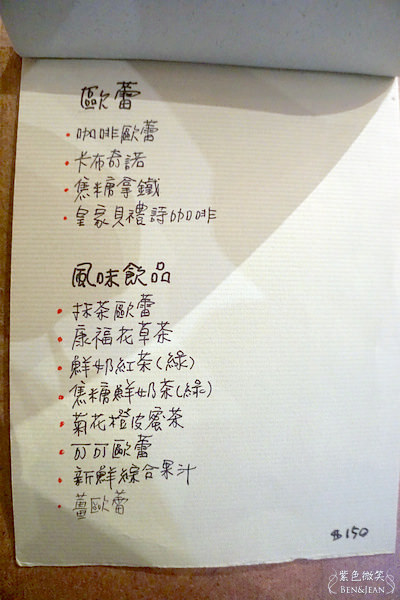 歐蕾
• 咖啡歐蕾
• 卡布奇諾
• 焦糖拿鐵
• 皇家貝禮詩咖啡
風味飲品
• 抹茶歐蕾
• 康福花草茶
• 鮮奶紅茶(綠)
• 焦糖鮮奶茶(綠)
• 菊花橙皮蜜茶
• 可可歐蕾
• 新鮮綜合果汁
• 薑歐蕾
$150
紫色微笑
BEN&JEAN